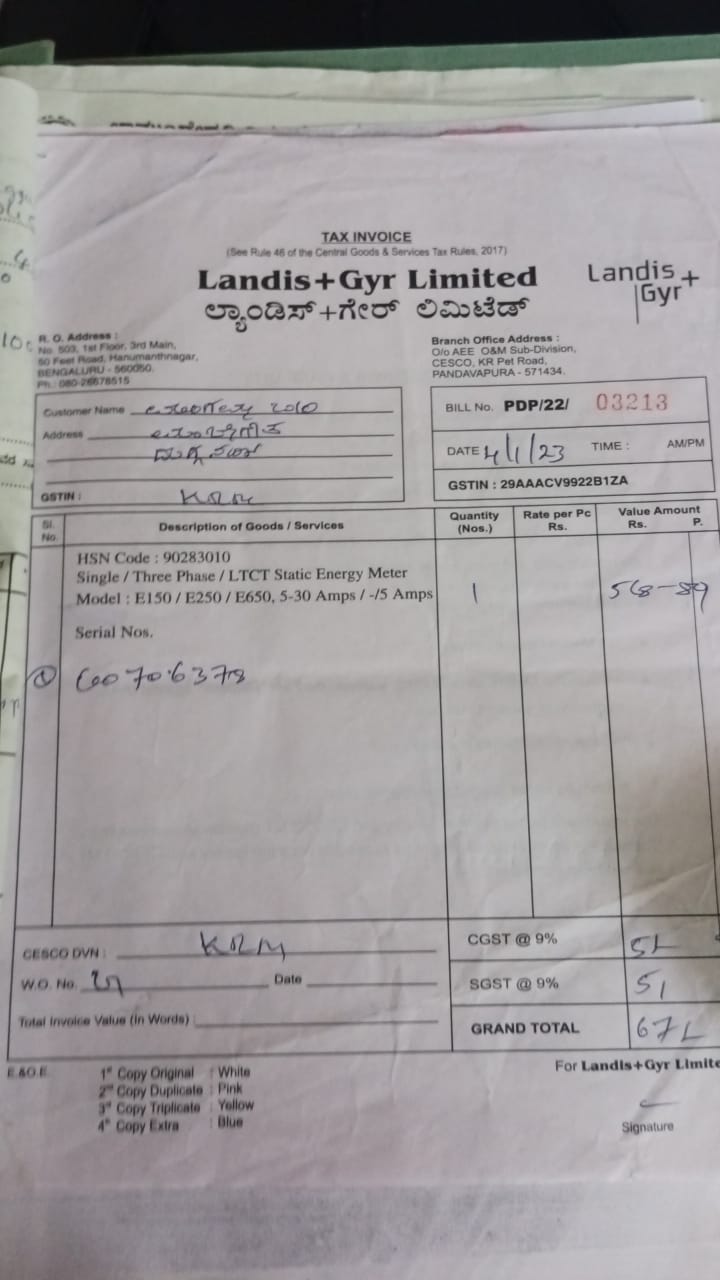 TAX INVOICE
(See Rule 46 of the Central Goods & Services Tax Rules, 2017)
Landis+Gyr Limited
ಲ್ಯಾಂಡಿಸ್+ಗೇರ್ ಲಿಮಿಟೆಡ್
Landis+
Gyr
R. O. Address :
No. 503, 1st Floor, 3rd Main,
50 Feet Road, Hanumanthnagar,
BENGALURU - 560050.
Ph.: 080-26678515
Branch Office Address :
O/o AEE O&M Sub-Division,
CESCO, KR Pet Road,
PANDAVAPURA - 571434.
Customer Name
Address
GSTIN :
BILL No. PDP/22/ 03213
DATE 4/1/23 TIME : AM/PM
GSTIN : 29AAACV9922B1ZA
Sl. No. Description of Goods / Services Quantity (Nos.) Rate per Pc Rs. Value Amount Rs. P.
HSN Code : 90283010
Single / Three Phase / LTCT Static Energy Meter
Model : E150 / E250 / E650, 5-30 Amps / -/5 Amps 1 568-89
Serial Nos.
① 60706378
CESCO DVN : KRM
W.O. No. Date
Total Invoice Value (In Words) :
CGST @ 9% 51
SGST @ 9% 51
GRAND TOTAL 671
E.&O.E.
1st Copy Original : White
2nd Copy Duplicate : Pink
3rd Copy Triplicate : Yellow
4th Copy Extra : Blue
For Landis+Gyr Limite
Signature